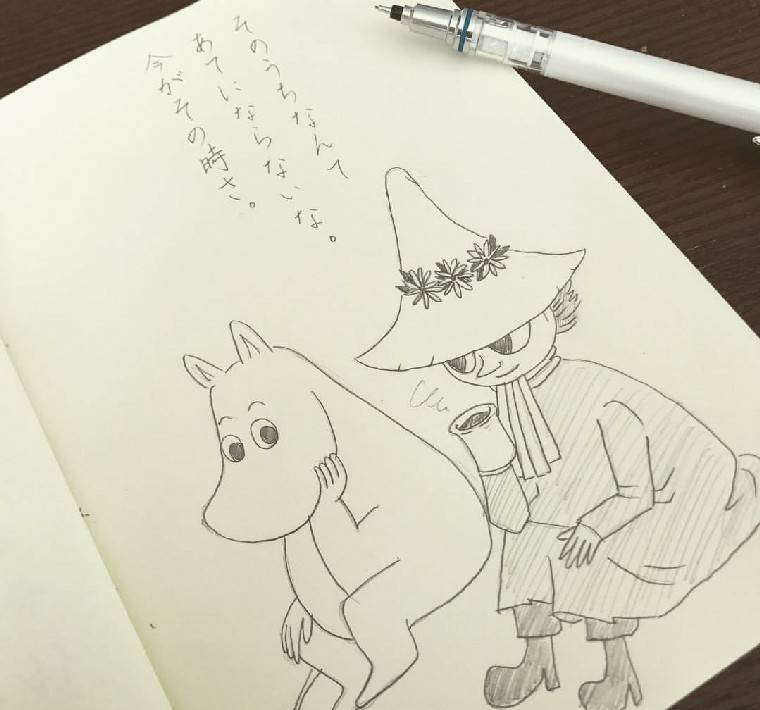 そのうちなんて
あてにならないな。
今がその時さ。